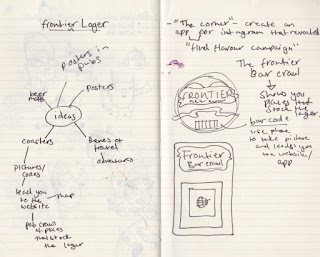 frontier Lager
posters in
pubs
beer
mats
posters
ideas
coasters
themes of
travel
adventures
pictures/
codes
lead you
to the
website
map
pub crawl
of places
that stock
the lager
- "The corner" - create an
app for instagram that revealed
"find flavour campaign"
The frontier
Bar crawl
Shows you
places that
stock the
lager.
FRONTIER
bar code
use phone
to take picture
and leads you
to a website/
app
Frontier
Bar crawl